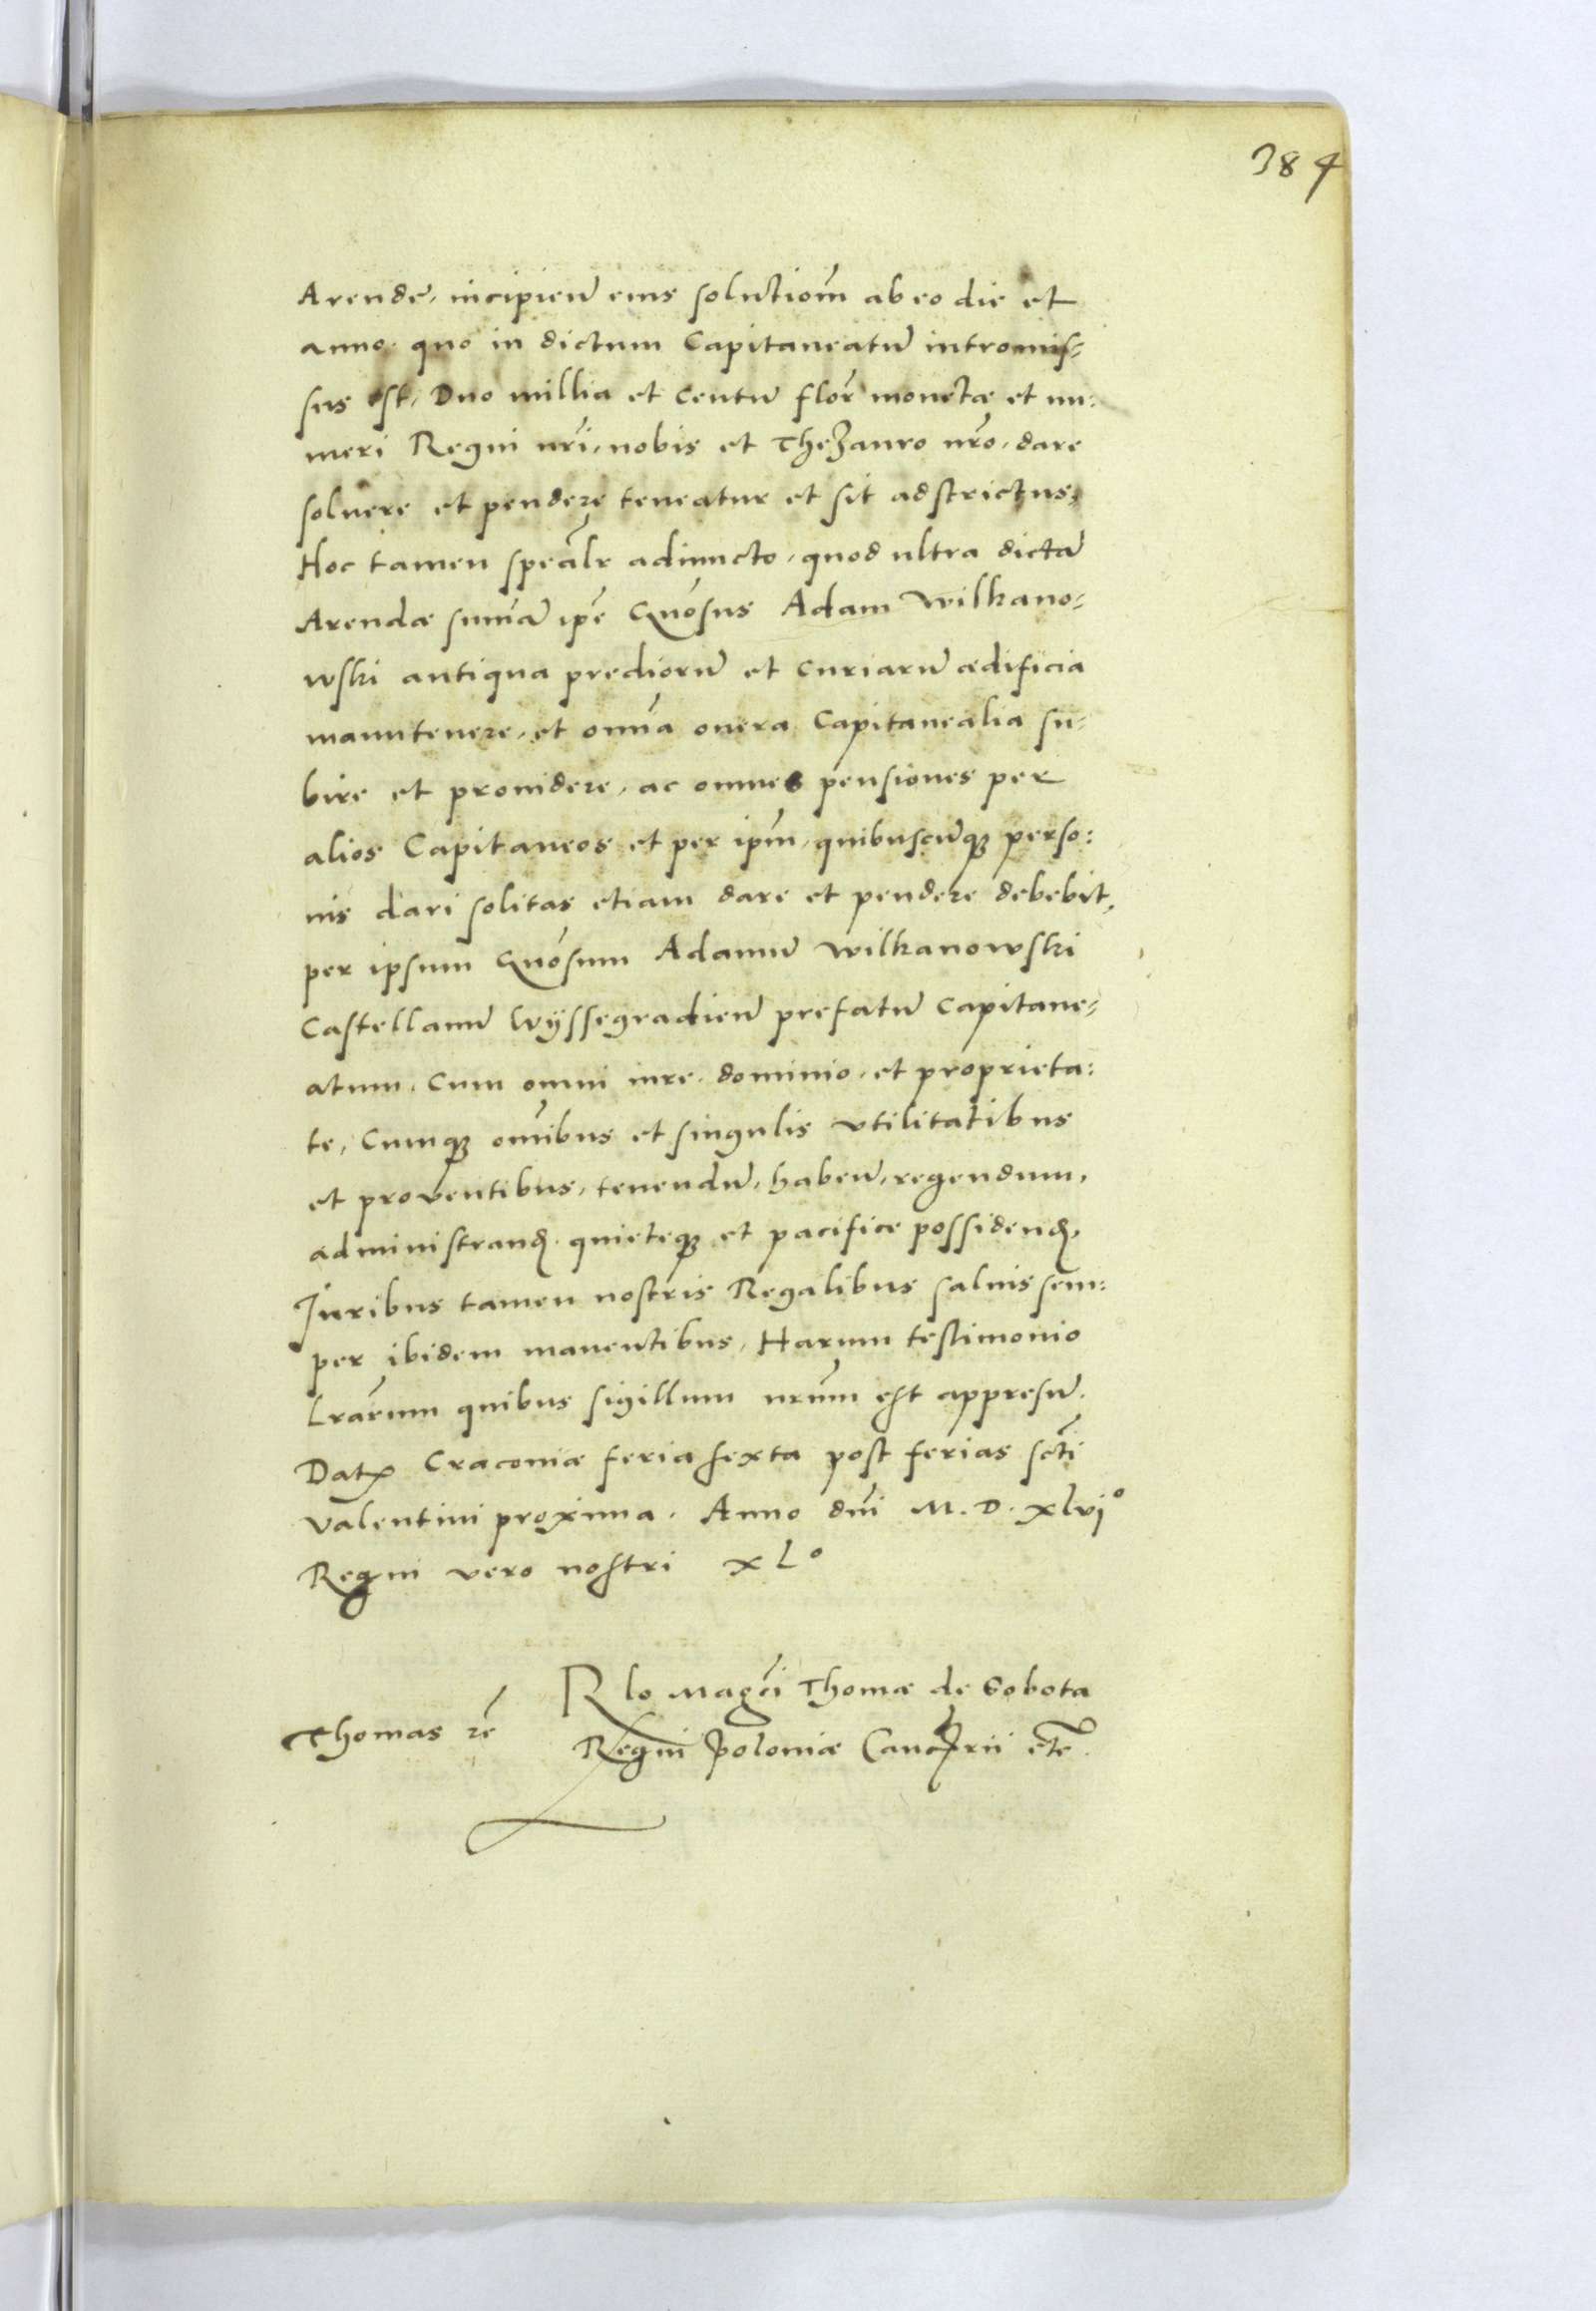 384
Arendẽ, incipien̄ eius solutiom̄ ab eo die et
anno quo in dictum Capitaneatū intromis-
sus est, Duo millia et centū flor̄ monetæ et nu-
meri Regni nr̄i, nobis et Thezauro nr̄o, dare
soluere et pendere teneatur et sit adstrictus,
Hoc tamen speāl̄r adiuncto, quod ultra dictā
Arendæ sum̄ā ip̄e Gn̄osus Adam Wilkano-
wski antiqua prediorū et curiarū ædificia
manutenere, et om̄ia onera Capitanealia su-
bire et prouidere, ac omnes pensiones per
alios Capitaneos et per ip̄m, quibuscūqꝫ perso-
nis dari solitas etiam dare et pendere debebit,
per ipsum Gn̄osum Adamū Wilkanowski
Castellanū Wyssegradien̄ prefatū Capitane-
atum, Cum omni iure dominio, et proprieta-
te, Cumqꝫ om̄ibus et singulis vtilitatibus
et prouentibus, tenendū, haben̄, regendum,
administrand̄ quieteqꝫ et pacifice possidend̄,
Juribus tamen nostris Regalibus saluis sem-
per ibidem manentibus, Harum testimonio
Lr̄arum quibus sigillum nr̄um est appresū.
Datꝭ Craconiæ feria sexta post ferias sc̄ti
Valentini proxima. Anno dn̄i M. D. xlvi°
Regni vero nostri xL°
Rl̄o Magc̄i Thomæ de Sobota
Regni Poloniæ Canc̄rii etc̄.
Thomas